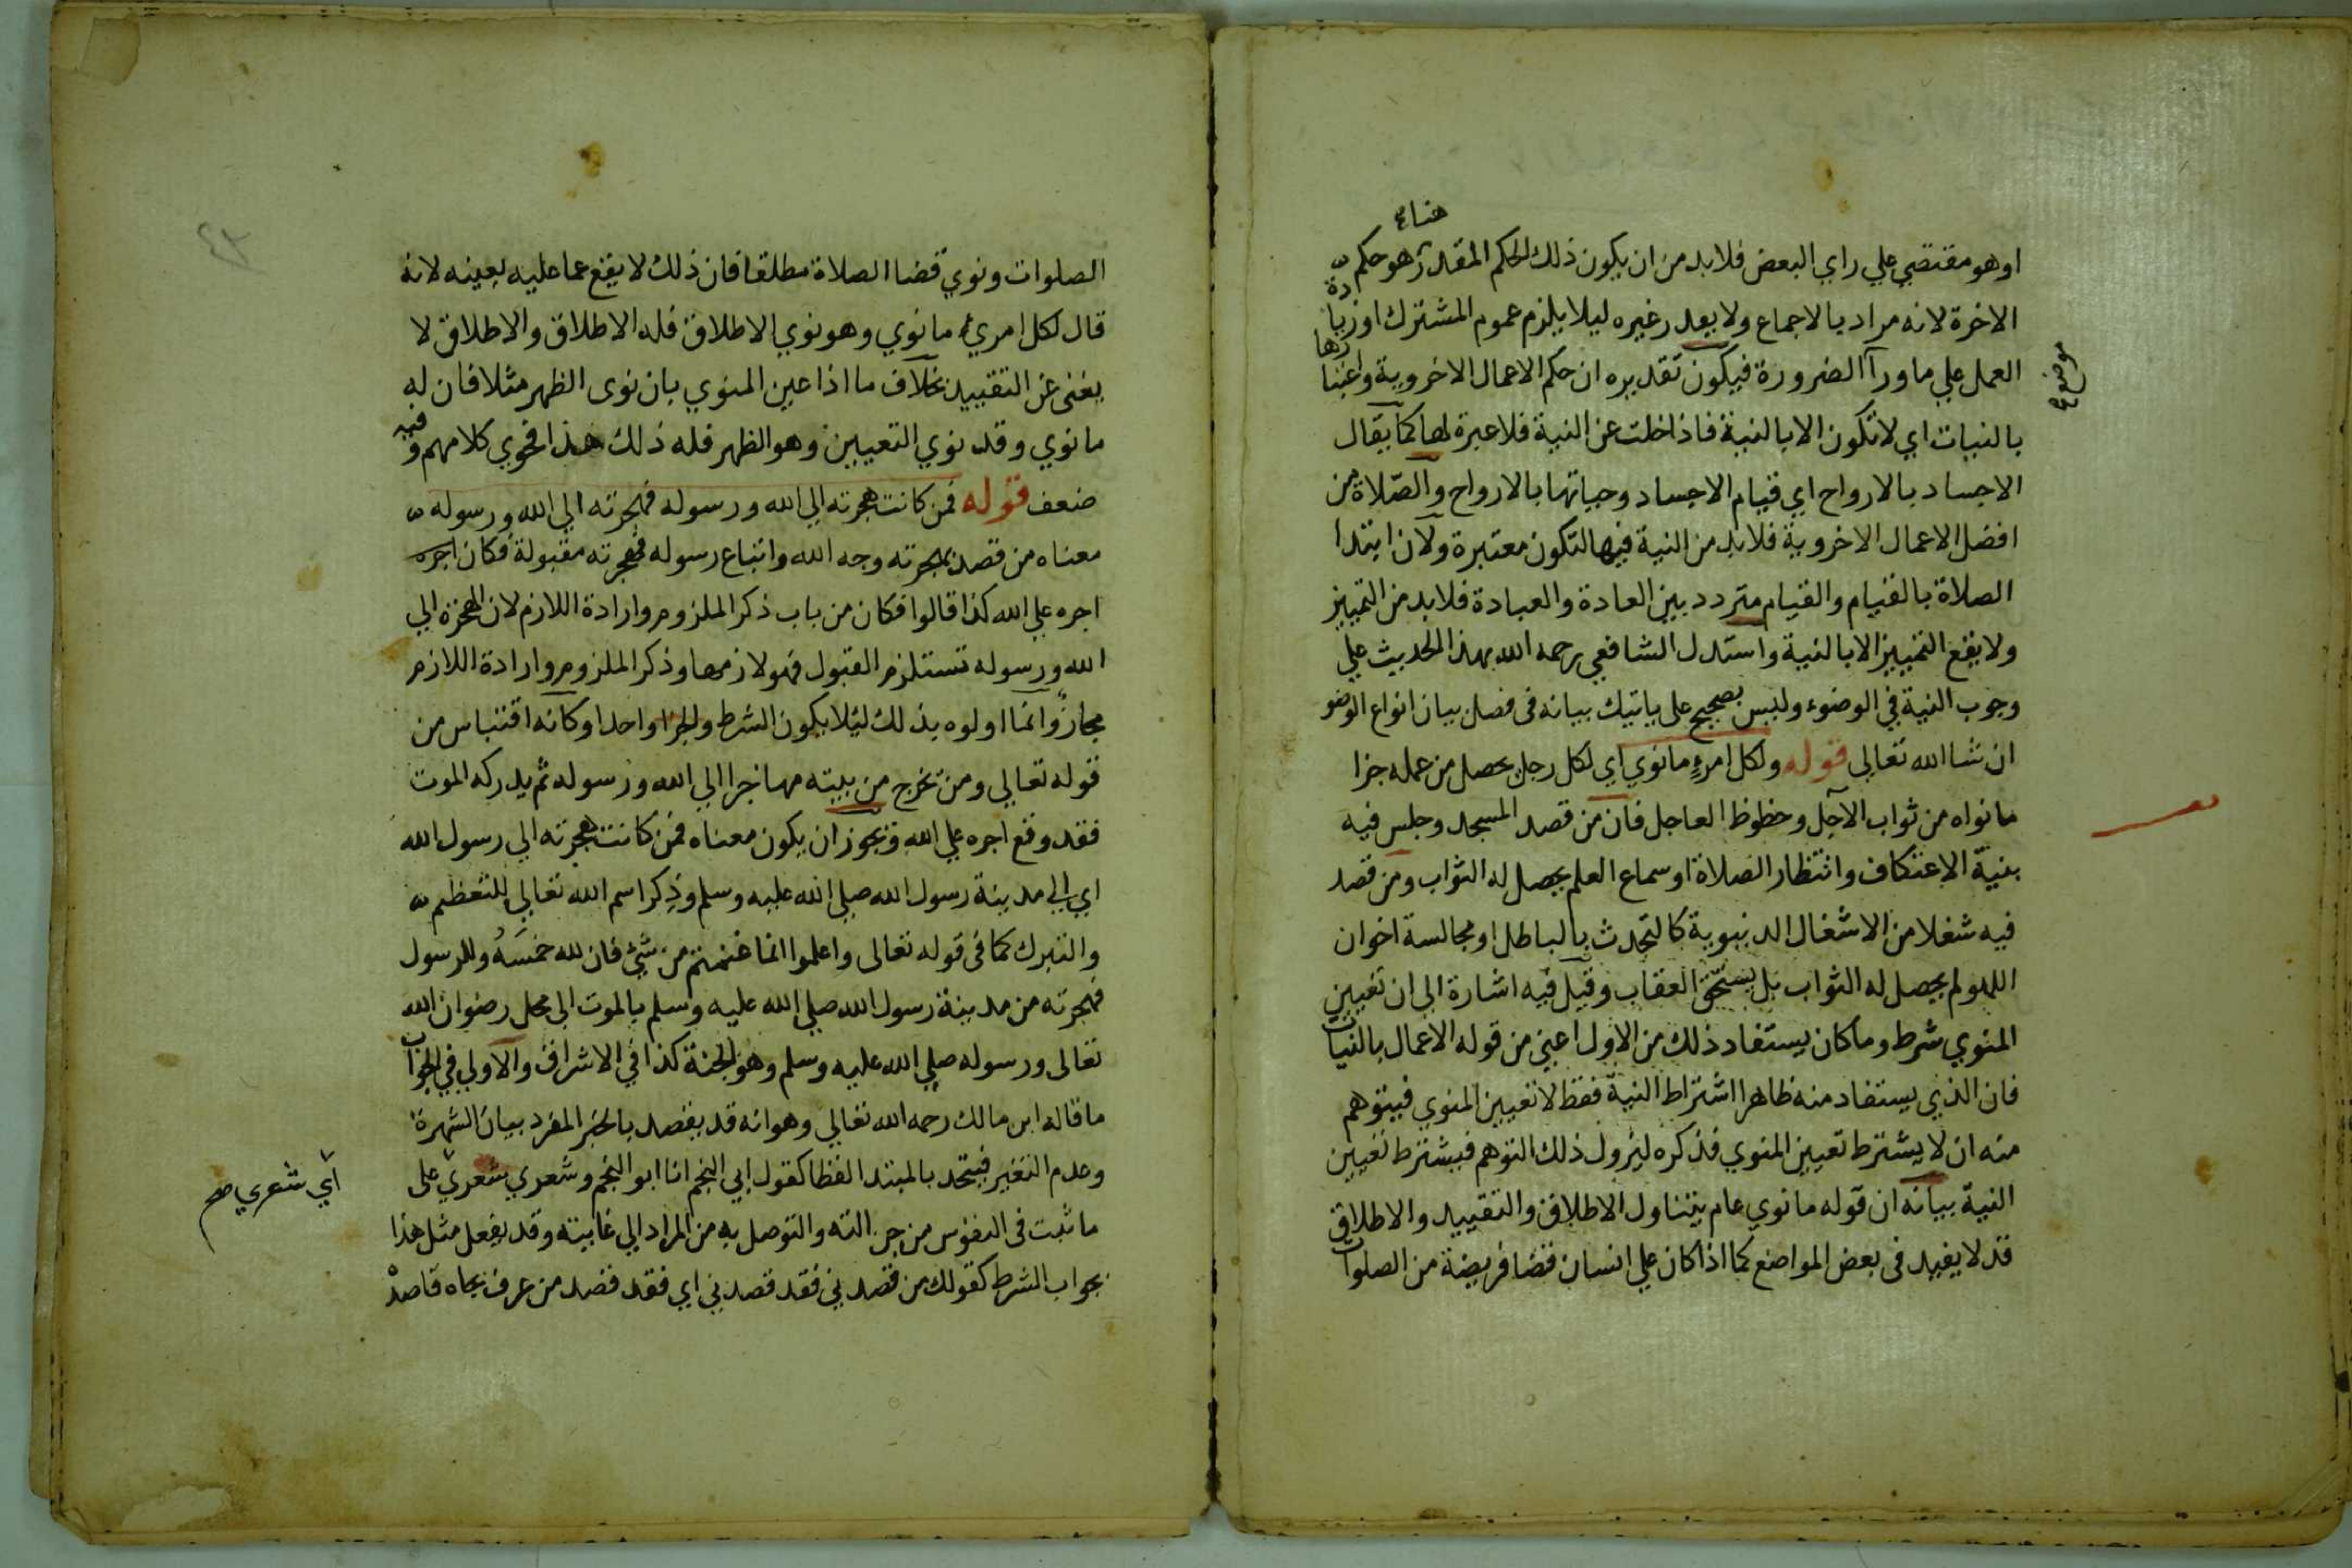 هنا
او هو مقتضي علي راي البعض فلا بد من ان يكون ذلك الحكم المقدر هو حكم
الاخرة لانه مراد بالاجماع ولا يقدر غيره ليلا يلزم عموم المشترك او زيادة
العمل علي ما ورآ الضرورة فيكون تقديره ان حكم الاعمال الاخروية واعتبارها
موضع
بالنيات اي لا تكون الا بالنية فاذا خلت عن النية فلا عبرة لها كما يقال
الاجساد بالارواح اي قيام الاجساد وحياتها بالارواح والصّلاة من
افضل الاعمال الاخروية فلا بد من النية فيها لتكون معتبرة ولان ابتدا
الصلاة بالقيام والقيام متردد بين العادة والعبادة فلا بد من التمييز
ولا يقع التمييز الا بالنية واستدل الشافعي رحمه الله بهذا الحديث علي
وجوب النية في الوضوء وليس بصحيح على ياتيك بيانه فى فصل بيان انواع الوضو
ان شا الله تعالى قوله ولكل امرءٍ ما نوي اي لكل رجل يحصل من عمله جزا
ما نواه من ثواب الآجل وحظوظ العاجل فان من قصد المسجد وجلس فيه
بنية الاعتكاف وانتظار الصلاة او سماع العلم يحصل له الثواب ومن قصد
فيه شغلا من الاشغال الدنيوية كالتحدث بالباطل او مجالسة اخوان
اللهو لم يحصل له الثواب بل يستحق العقاب وقيل فيه اشارة الى ان تعيين
المنوي شرط وما كان يستفاد ذلك من الاول اعني من قوله الاعمال بالنيات
فان الذي يستفاد منه ظاهرا اشتراط النية فقط لا تعيين المنوي فيتوهم
منه ان لا يشترط تعيين المنوي فذكره ليزول ذلك التوهم فيشترط تعيين
النية بيانه ان قوله ما نوي عام يتناول الاطلاق والتقييد والاطلاق
قد لا يفيد فى بعض المواضع كما اذا كان علي انسان قضا فريضة من الصلوات
٤٣
الصلوات ونوي قضا الصلاة مطلقا فان ذلك لا يقع عما عليه بعينه لانه
قال لكل امري ما نوي وهو نوي الاطلاق فله الاطلاق والاطلاق لا
يغنى عن التقييد بخلاف ما اذا عين المنوي بان نوى الظهر مثلا فان له
ما نوي وقد نوي التعيين وهو الظهر فله ذلك هذا فحوي كلامهم وفيه
ضعف قوله فمن كانت هجرته الي الله ورسوله فهجرته الي الله ورسوله
معناه من قصد بهجرته وجه الله واتباع رسوله فهجرته مقبولة فكان اجره
اجره علي الله كذا قالوا فكان من باب ذكر الملزوم وارادة اللازم لان الهجرة الي
الله ورسوله تستلزم القبول فهو لازمها وذكر الملزوم وارادة اللازم
مجاز وانما اولوه بذلك لئلا يكون الشرط والجزا واحدا وكانه اقتباس من
قوله تعالى ومن يخرج من بيته مهاجرا الي الله ورسوله ثم يدركه الموت
فقد وقع اجره علي الله ويجوز ان يكون معناه فمن كانت هجرته الي رسول الله
اي الي مدينة رسول الله صلي الله عليه وسلم وذِكر اسم الله تعالي للتعظيم
والتبرك كما فى قوله تعالى واعلموا انما غنمتم من شيْ فان لله خمسَهُ وللرسول
فهجرته من مدينة رسول الله صلي الله عليه وسلم بالموت الى محل رضوان الله
تعالى ورسوله صلي الله عليه وسلم وهو الجنة كذا في الاشراف والاولي في الجواب
ما قاله ابن مالك رحمه الله تعالي وهو انه قد يقصد بالخبر المفرد بيان الشهرة
وعدم التغير فيتحد بالمبتدا لفظا كقول ابي النجم انا ابو النجم وشعري شعري على
أي شعري صح
ما ثبت فى النفوس من جزالته والتوصل به من المراد الي غايته وقد يفعل مثل هذا
بجواب الشرط كقولك من قصدني فقد قصدني اي فقد قصد من عرف بجاه قاصدْ